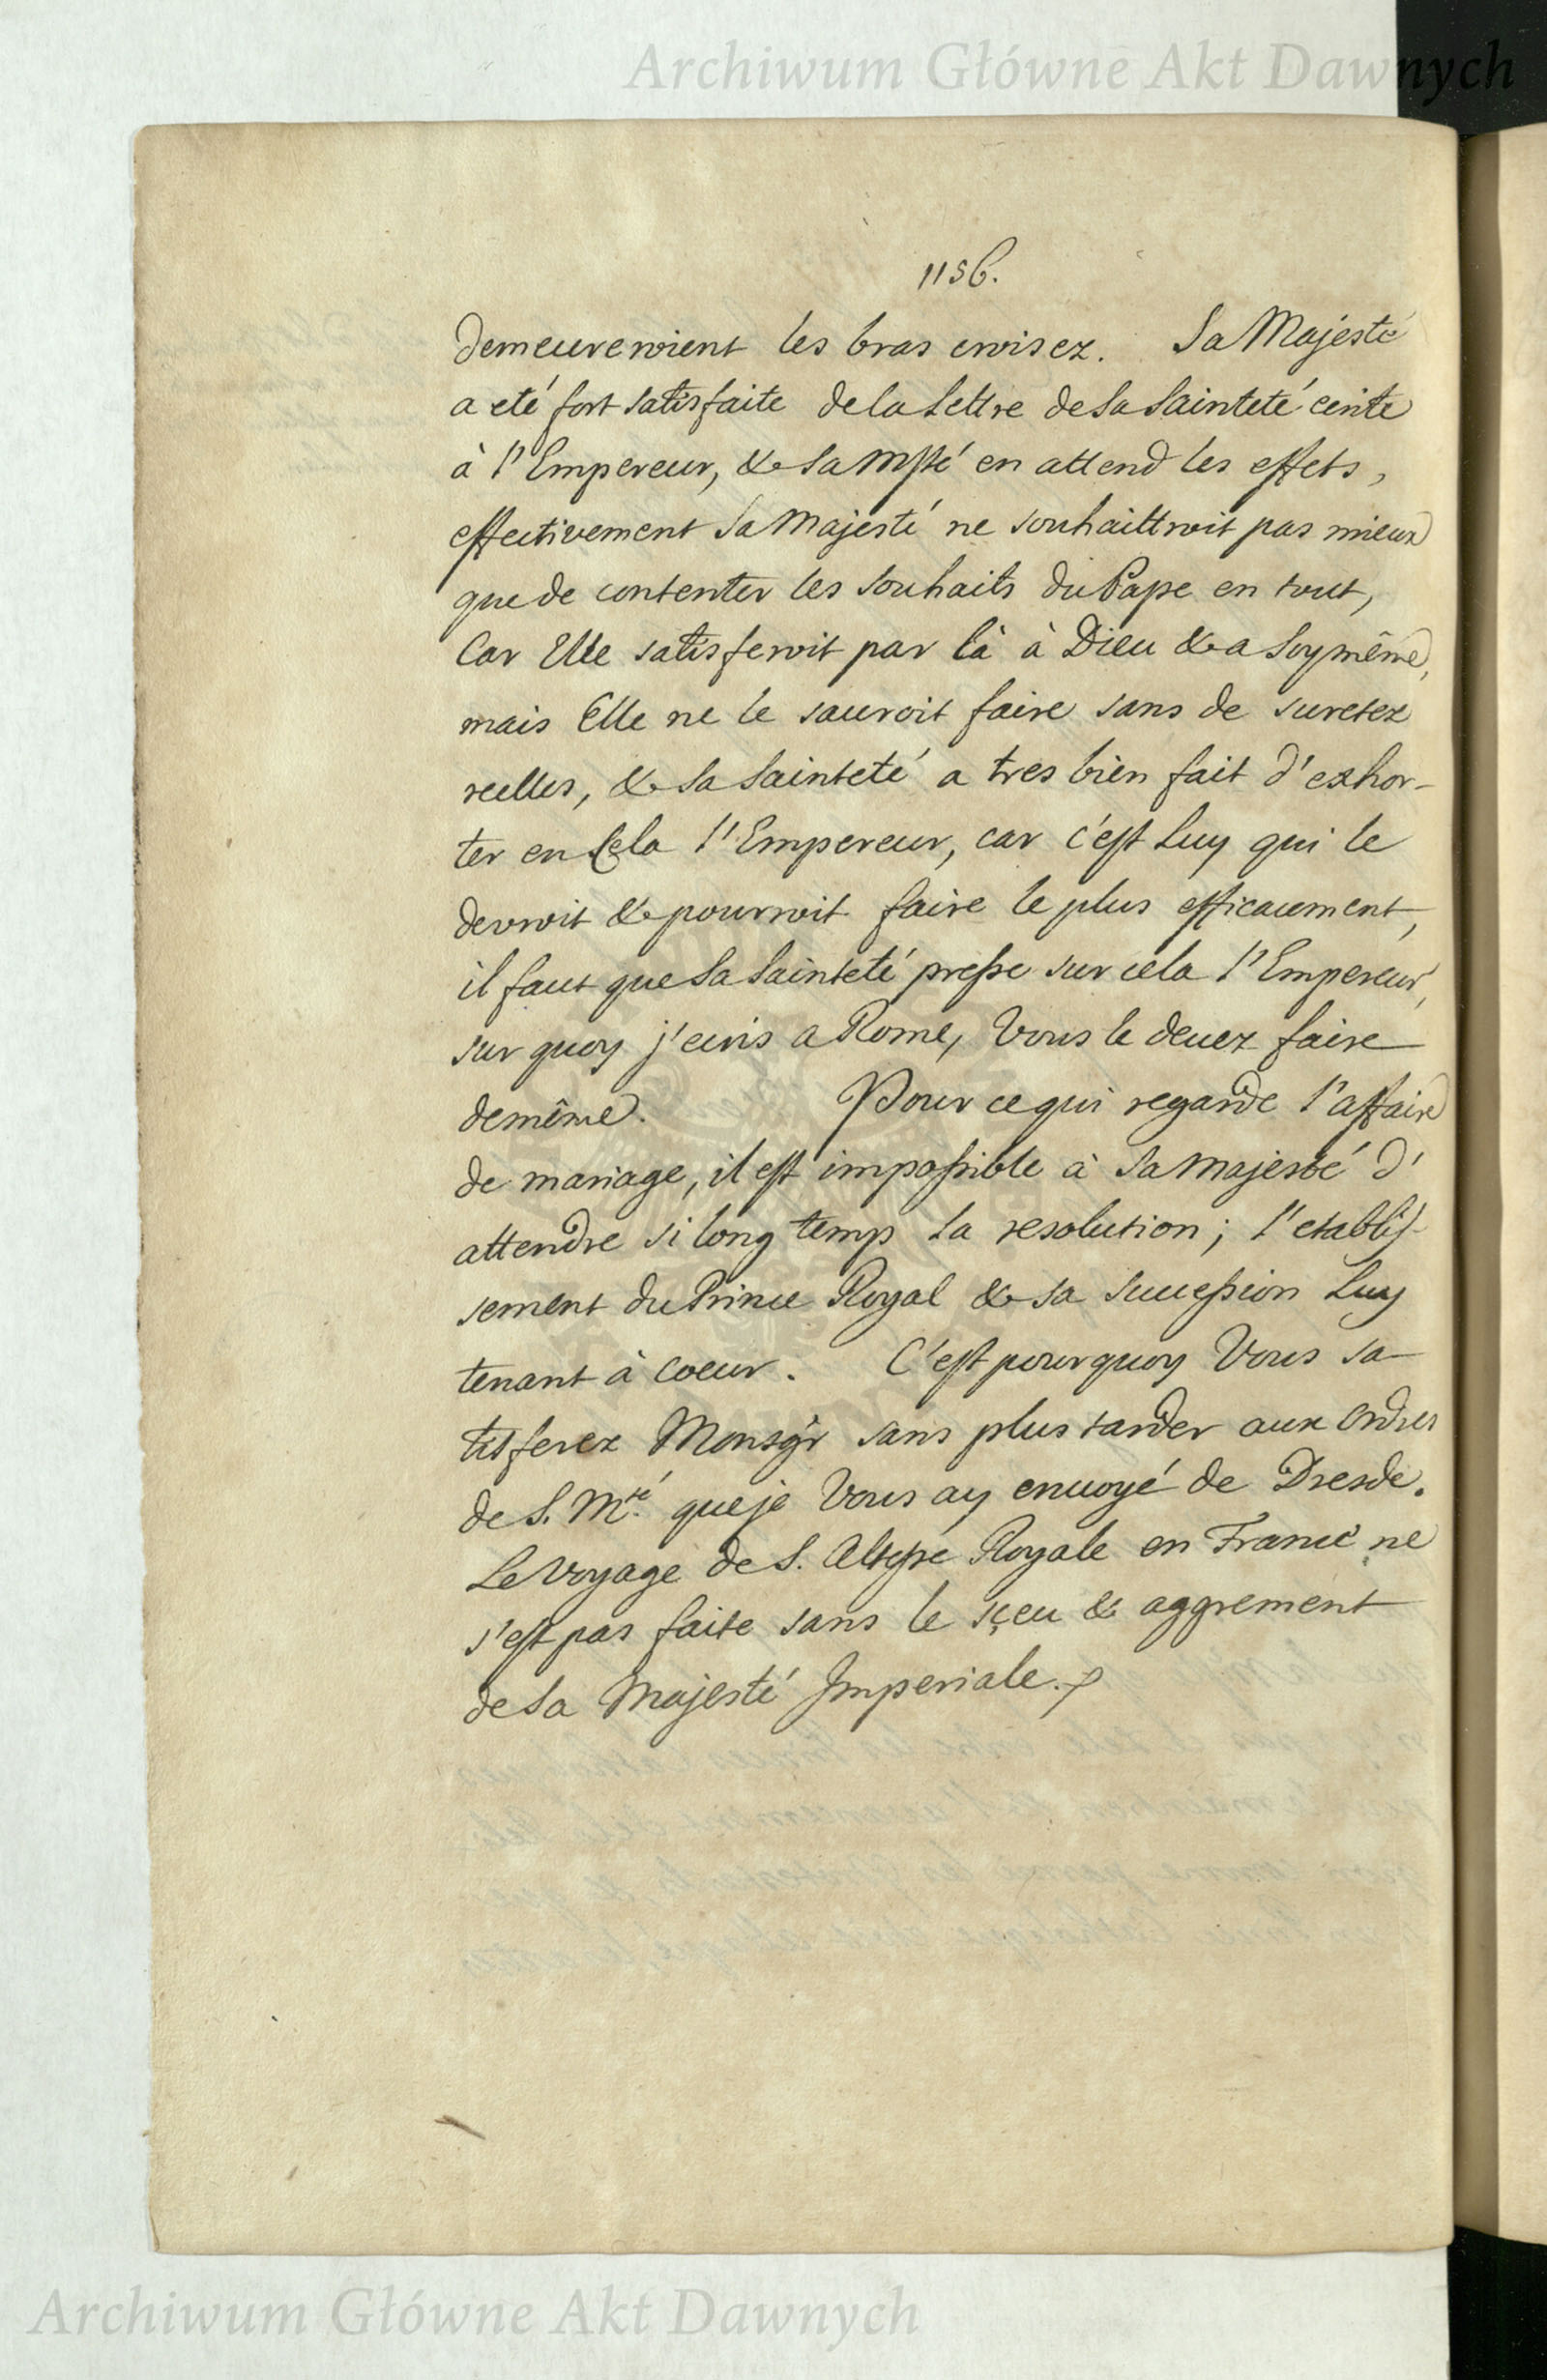 Archiwum Główne Akt Dawnych
1156.
demeureroient les bras croisez. Sa Majesté
a eté fort satisfaite de la Lettre de Sa Sainteté ecrite
à l'Empereur, & Sa Mste' en attend les effets,
effectivement Sa Majesté ne souhaittroit pas mieux
que de contenter les souhaits du Pape en tout,
Car Elle satisferoit par là à Dieu & a Soy même,
mais Elle ne le sauroit faire sans de suretez
reelles, & Sa Sainteté a tres bien fait d'exhor-
ter en Cela l'Empereur, car c'est Luy qui le
devroit & pourroit faire le plus efficacement,
il faut que Sa Sainteté presse sur cela l'Empereur,
sur quoy j'ecris a Rome, Vous le devez faire
de même. Pour ce qui regarde l'affaire
de mariage, il est impossible à Sa Majesté d'
attendre si long temps la resolution; l'etablis-
sement du Prince Royal & sa succession Luy
tenant à coeur. C'est pourquoy Vous sa-
tisferez Monsgr sans plus tarder aux Ordres
de S. Mté que je Vous ay envoyé de Dresde.
Le Voyage de S. Altesse Royale en France ne
s'est pas faite sans le sçeu & aggrement
de Sa Majesté Imperiale.
Archiwum Główne Akt Dawnych